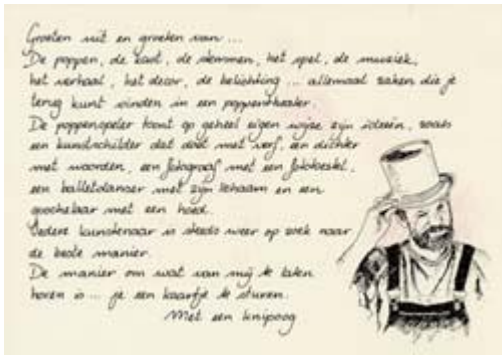 Groeten uit en groeten van ...
De poppen, de kast, de stemmen, het spel, de muziek,
het verhaal, het decor, de belichting ... allemaal zaken die je
terug kunt vinden in een poppentheater.
De poppenspeler toont op geheel eigen wijze zijn ideeën, zoals
een kunstschilder dat doet met verf, een dichter
met woorden, een fotograaf met een fototoestel,
een balletdanser met zijn lichaam en een
goochelaar met een hoed.
Iedere kunstenaar is steeds weer op zoek naar
de beste manier.
De manier om wat van mij te laten
horen is ... je een kaartje te sturen.
Met een knipoog